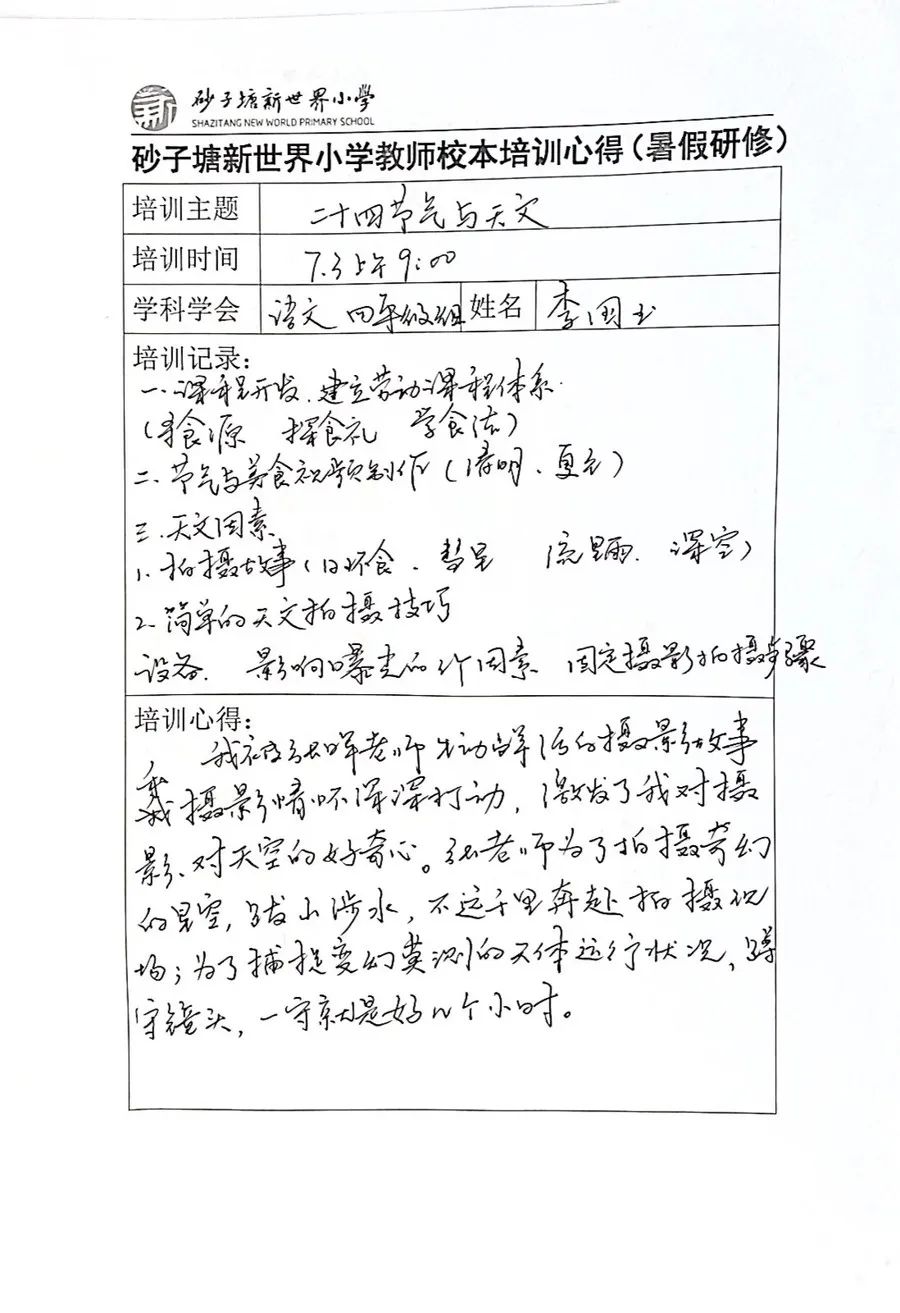 砂子塘新世界小学
SHAZITANG NEW WORLD PRIMARY SCHOOL
砂子塘新世界小学教师校本培训心得（暑假研修）
培训主题 二十四节气与天文
培训时间 7.3上午9:00
学科学会 语文 四年级组 姓名 李国玉
培训记录：
一.课程开发.建立劳动课程体系.
（寻食源 探食礼 学食法）
二.节气与美食视频制作（清明、夏至）
三.天文因素
1.拍摄故事（日环食、彗星 流星雨. 深空）
2.简单的天文拍摄技巧
设备. 影响曝光的 因素 固定摄影拍摄步骤
培训心得：
我被张 老师生动鲜活的摄影故事
和摄影情怀深深打动，激发了我对摄
影、对天空的好奇心。张老师为了拍摄奇幻
的星空，跋山涉水，不远千里奔赴拍摄现
场；为了捕捉变幻莫测的天体运行状况，蹲
守镜头，一守就是好几个小时。